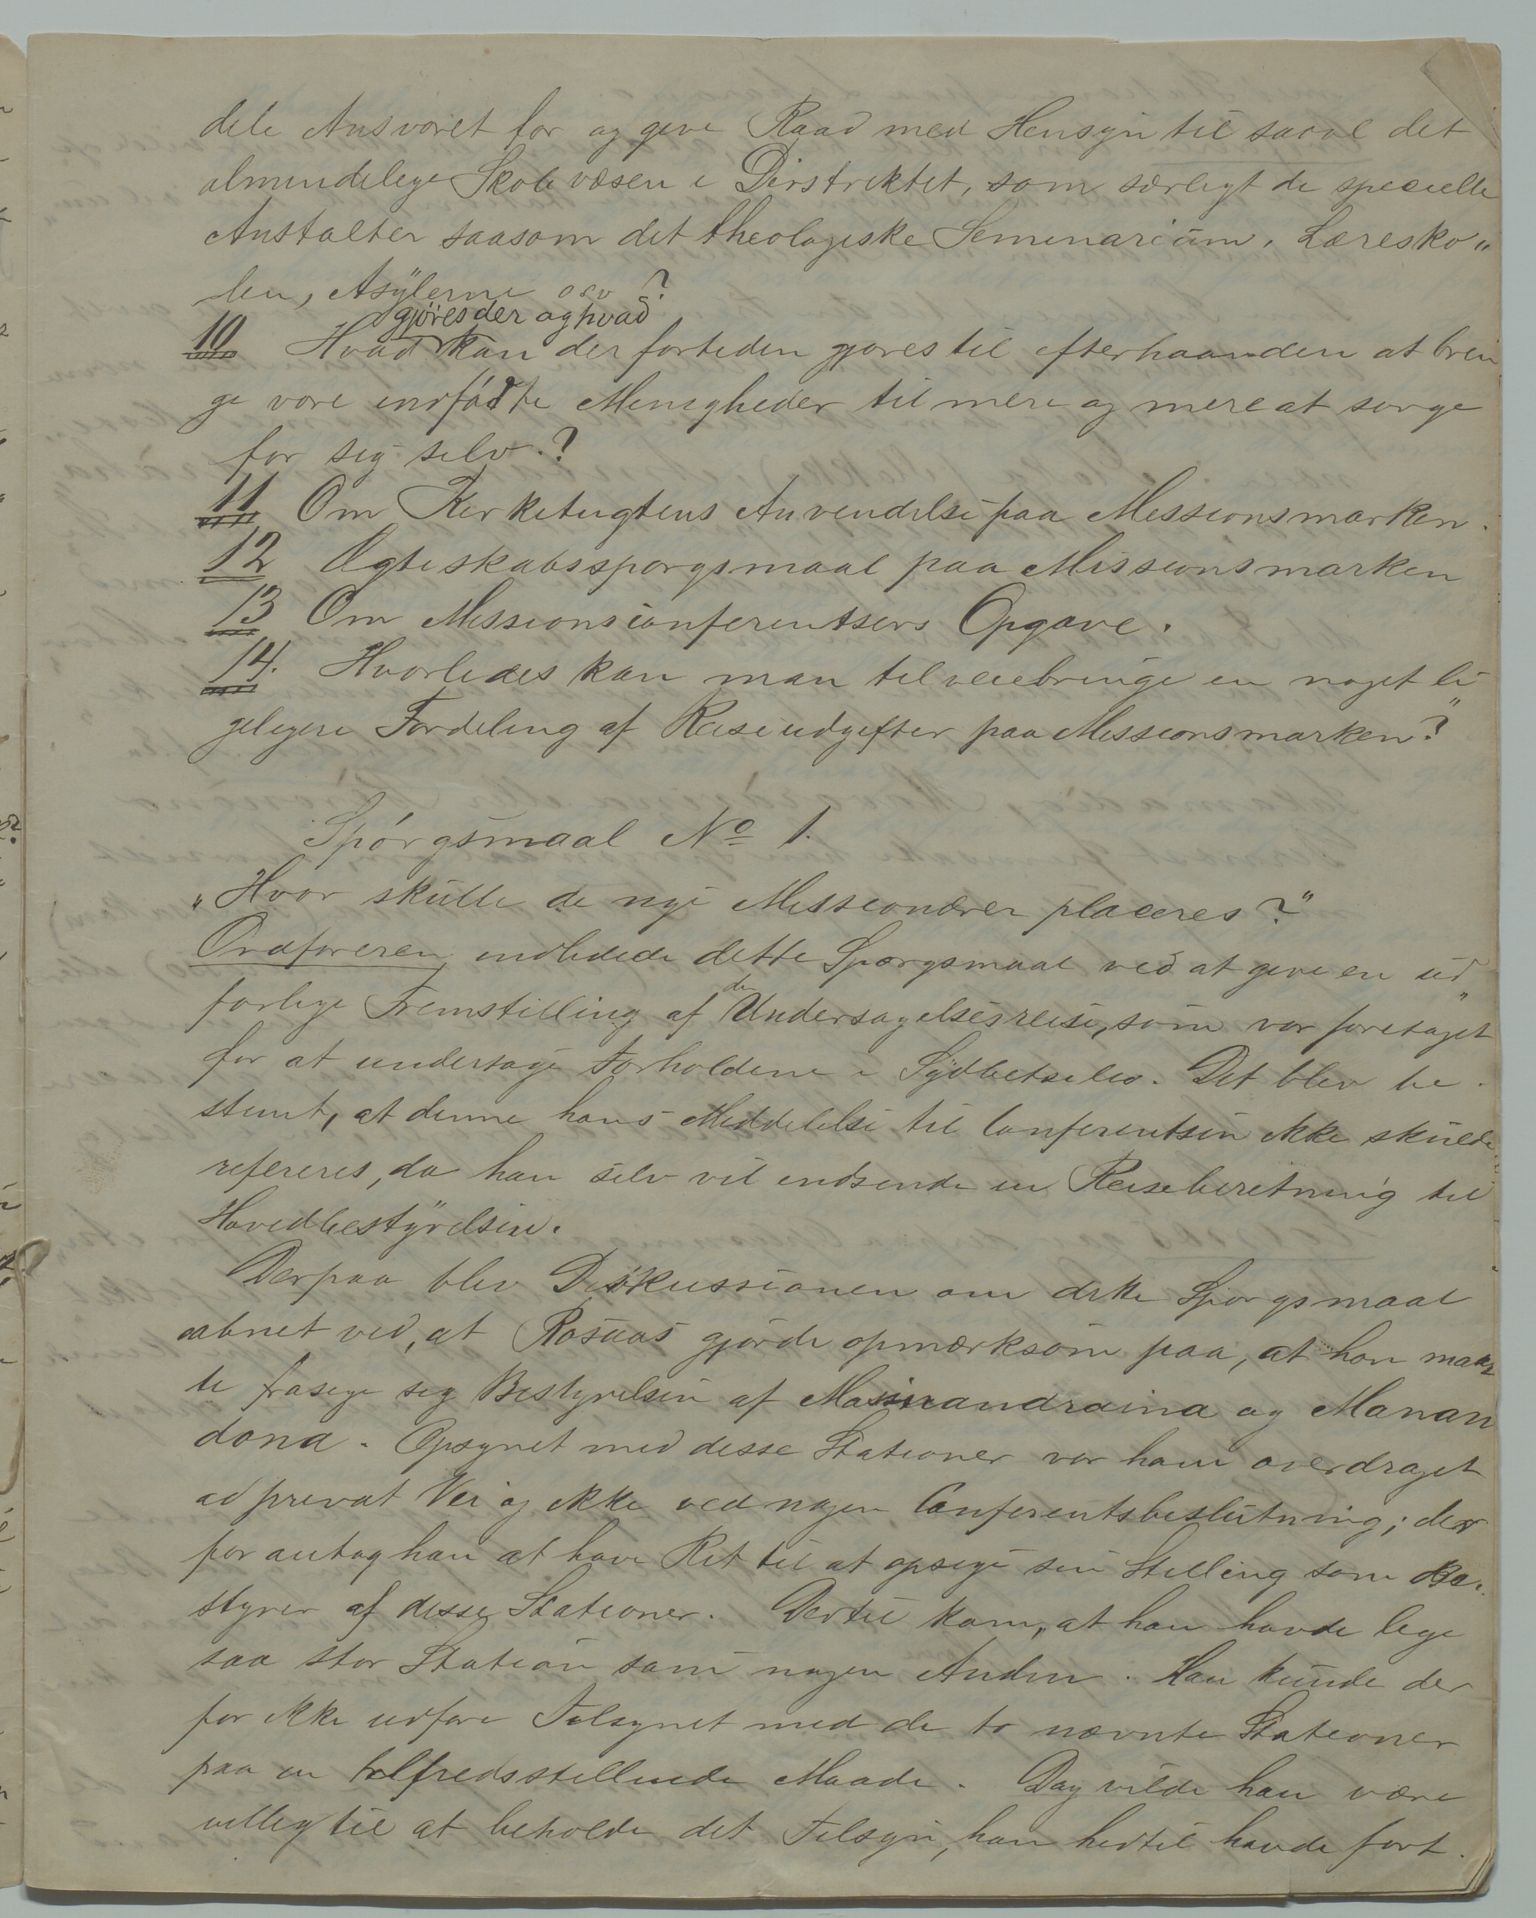 dele Ansvaret for og give Raad med Hensyn til saavel det
almindelige Skolevæsen i Dirstriktet, som særligt de specielle
Anstalter saasom det theologiske Seminarium, Læresko„
len, Asÿlerne osv ?
gjöres der og hvad
10 Hvad kan der fortiden gjøres til efterhaanden at brin
ge vore indfødte Menigheder til mere og mere at sørge
for sig selv.?
11 Om Kirketugtens Anvendelse paa Missionsmarken.
12 Ægteskabsspørgsmaal paa Missionsmarken
13 Om Missionsconferentsers Opgave.
14. Hvorledes kan man tilveiebringe en noget li„
geligere Fordeling af Reiseudgifter paa Missionsmarken?
Spørgsmaal No 1.
„Hvor skulle de nye Missionærer placeres?"
Ordføreren indledede dette Spørgsmaal ved at give en ud„
førlige Fremstilling af den Undersøgelsesreise, som var foretaget
for at undersøge Forholdene i Sydbetsileo. Det blev be-
stemt, at denne hans Meddelelse til Conferentsen ikke skulde
refereres, da han selv vil indsende en Reiseberetning til
Hovedbestÿrelsen.
Derpaa blev Diskussionen om dette Spørgsmaal
aabnet ved, at Rosaas gjorde opmærksom paa, at han maat
te frasige sig Bestyrelsen af Masinandraina og Manan
dona. Opsynet med disse Stationer var ham overdraget
ad privat Vei og ikke ved nogen Conferentsbeslutning; der
for antog han at have Ret til at opsige sin Stilling som Be-
styrer af disse Stationer. Dertil kom, at han havde lige
saa stor Station som nogen Anden. Han kunde der
for ikke udføre Tilsynet med de to nævnte Stationer
paa en tilfredsstillende Maade. Dog vilde han være
villig til at beholde det Tilsyn, han hidtil havde ført.